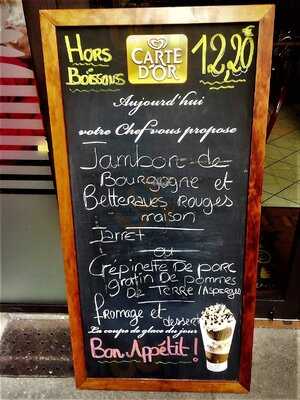 Hors
Boissons
CARTE
D'OR
12,20€
Aujourd'hui
votre Chef vous propose
Jambon de
Bourgogne et
Betteraves Rouges
maison
Jarret
ou
Crépinette De porc
gratin De pommes
De Terre/Asperges
fromage et dessert
La coupe de glace du jour
Bon Appétit!